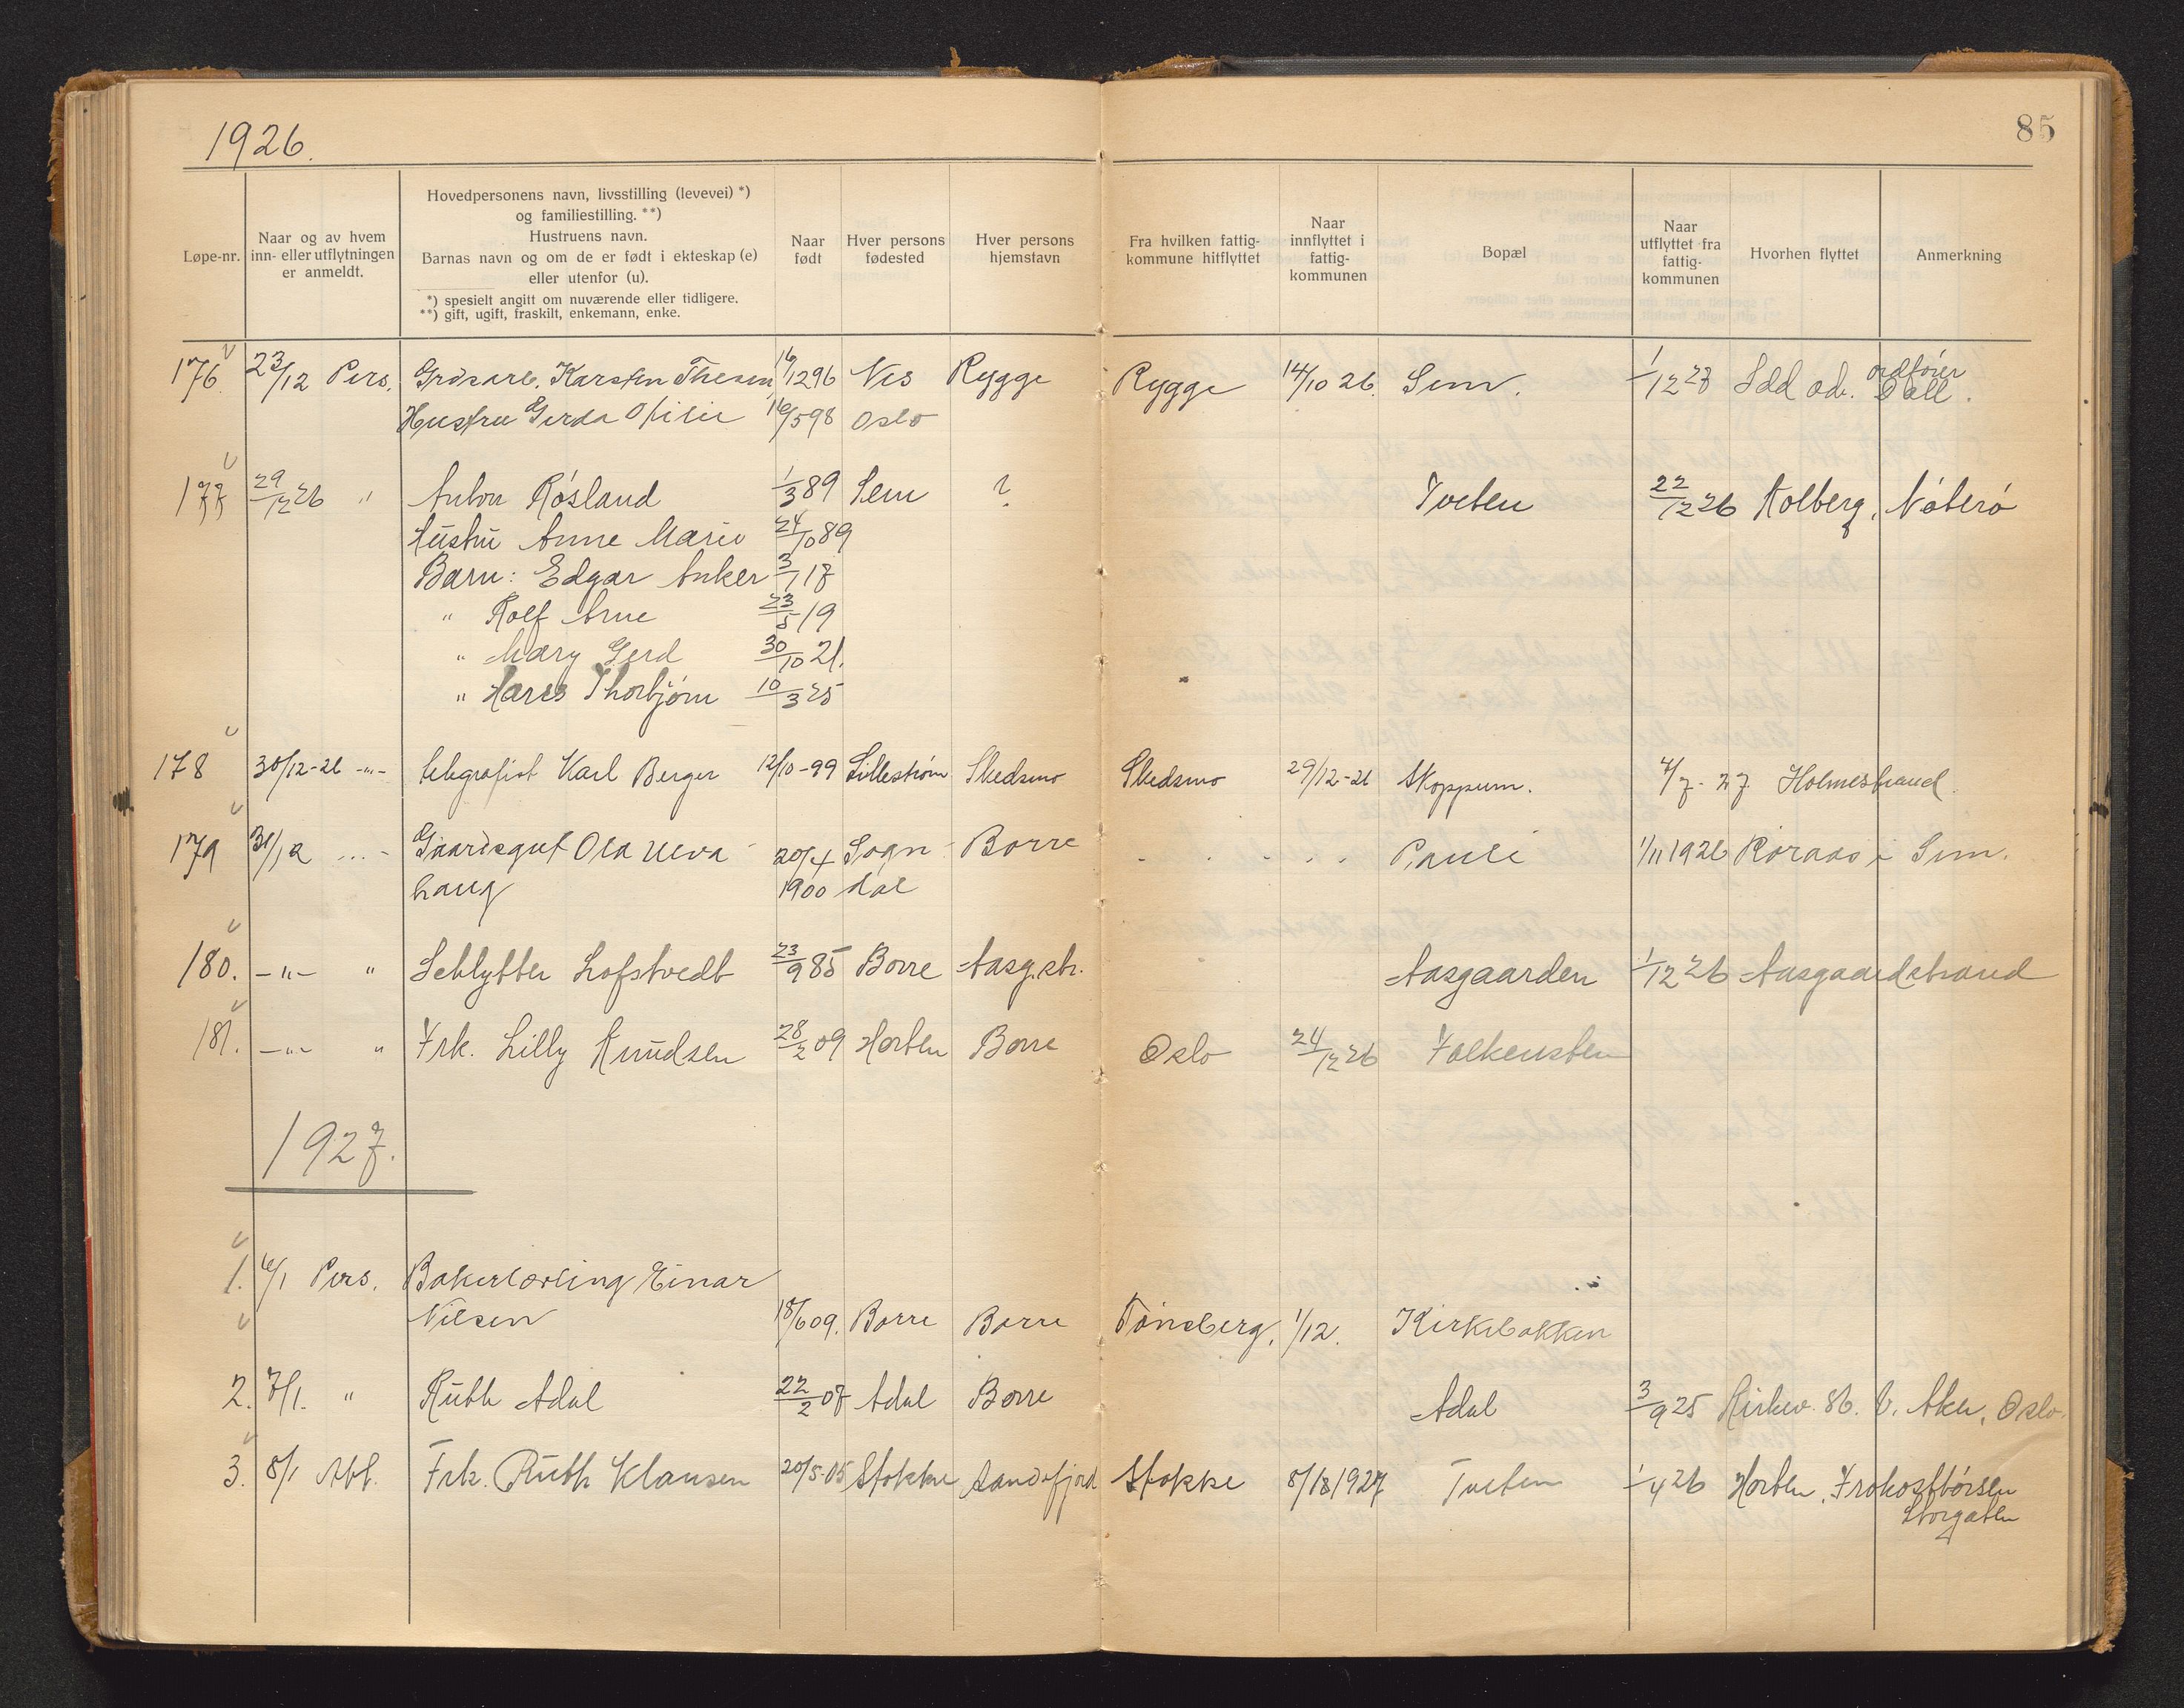 1926.
85
Løpe-nr.
Naar og av hvem
inn- eller utflytningen
er anmeldt.
Hovedpersonens navn, livsstilling (levevei) *)
og familiestilling. **)
Hustruens navn.
Barnas navn og om de er født i ekteskap (e)
eller utenfor (u).
*) spesielt angitt om nuværende eller tidligere.
**) gift, ugift, fraskilt, enkemann, enke.
Naar
født
Hver persons
fødested
Hver persons
hjemstavn
Fra hvilken fattig-
kommune hitflyttet
Naar
innflyttet i
fattig-
kommunen
Bopæl
Naar
utflyttet fra
fattig-
kommunen
Hvorhen flyttet
Anmerkning
176 23/12 Pers. Karsten Thesen 16/12 96 Nes Rygge Rygge 14/10 26. Sem. 1/12 27 Idd ad. ordfører
Hustru Gerda Otilie 16/5 98 Oslo
177 29/12 26 " Anton Røsland 1/3 89 Sem ? Tveten 22/12 26 Kolberg, Nøterø
Hustru Anne Marie 24/10 89
Barn: Edgar Anker 3/1 17
" Rolf Arne 23/5 19
" Mary Gerd 30/10 21.
" Hans Thorbjørn 10/3 25
178 30/12-26 -"- telegrafist Karl Berger 12/10-99 Lillestrøm Skedsmo Skedsmo 29/12-26 Skoppum. 4/7-27 Holmestrand.
179 31/12 Gaardsgut Ola Ulva 20/4 Sogn Borre Pauli 1/11 1926 Røraas i Sem.
haug 1900 dal
180. -"- " Schlytter Lofstvedt 23/9 85 Borre Aasg.str. Aasgaarden 1/12 26 Aasgaardstrand
181. -"- " Frk. Lilly Knudsen 28/2 09 Horten Borre Oslo 24/12 26 Falkensten
1927.
1. 6/1 Pers. Bakerlærling Einar
Nilsen 18/6 09. Borre Borre Tønsberg. 1/12. Kirkebakken
2. 7/1. " Ruth Adal 22/2 07 Adal Borre Adal 3/9 25 Kirkev. 86. V. Aker, Oslo.
3. 8/1 Frk. Ruth Klausen 20/5-05 Stokke Sandefjord Stokke 1927 Tveten 1/4 26 Horten, Frokostbørsen
Storgaten